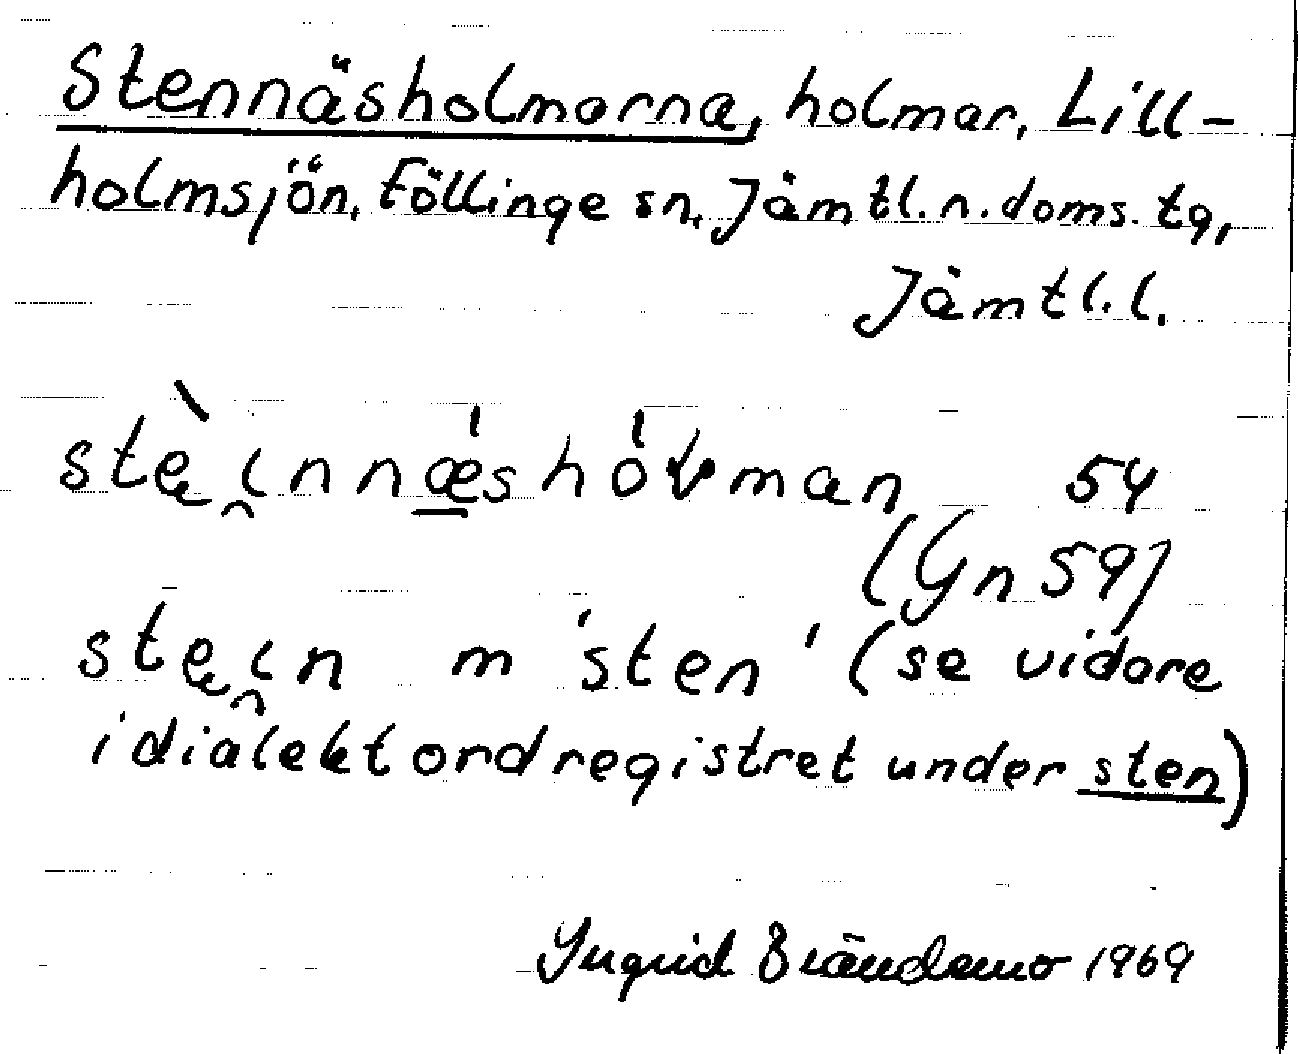 Stennäsholmarna, holmar, Lill-
holmsjön, Föllinge sn, Jämtl. n. doms. tg,
Jämtl. l.
54
(Gn 59)
m 'sten' (se vidare
i dialektordregistret under sten)
Ingrid Brändemo 1969